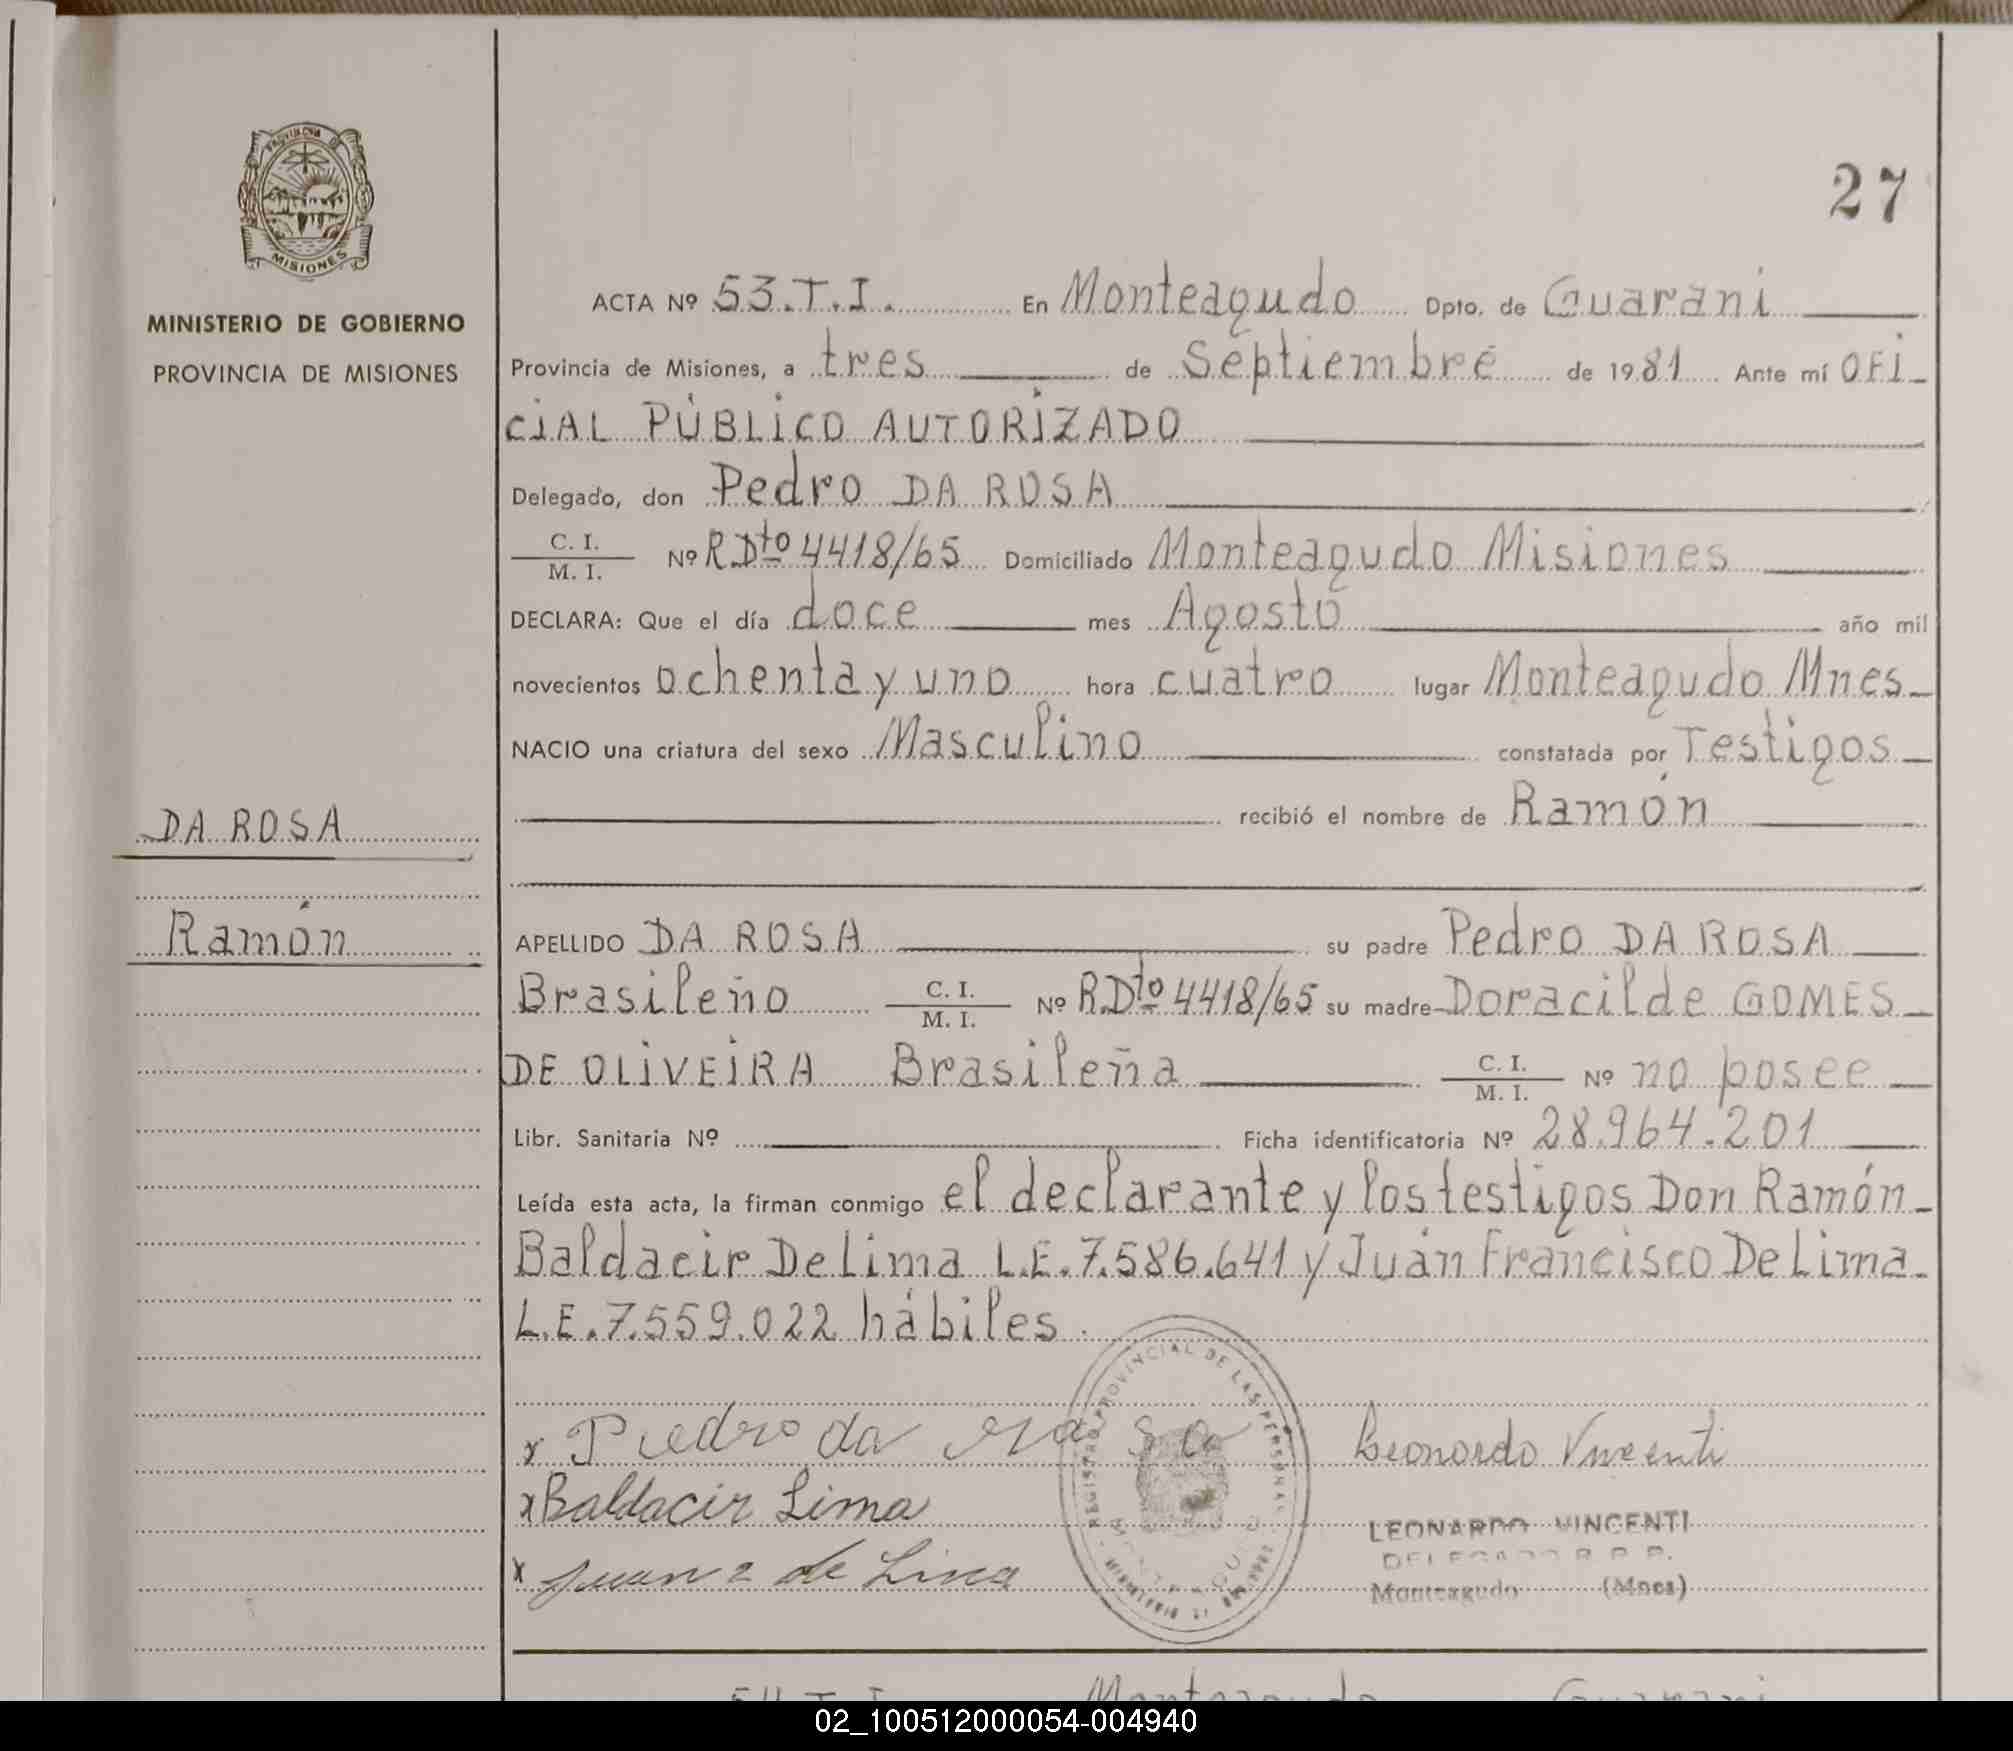 PROVINCIA DE
MISIONES
MINISTERIO DE GOBIERNO
PROVINCIA DE MISIONES
27
ACTA Nº 53.T.I. En Monteagudo Dpto. de Guarani
Provincia de Misiones, a tres de Septiembre de 1981 Ante mí OFi-
CiAL PÚBLiCO AUTORiZADO
Delegado, don Pedro DA ROSA
C. I.
M. I. Nº R.Dto 4418/65 Domiciliado Monteagudo Misiones
DECLARA: Que el día doce mes Agosto año mil
novecientos ochenta y uno hora cuatro lugar Monteagudo Mnes
NACIO una criatura del sexo Masculino constatada por Testigos
recibió el nombre de Ramón
DA ROSA
Ramón
APELLIDO DA ROSA su padre Pedro DA ROSA
Brasileño C. I.
M. I. Nº R.Dto 4418/65 su madre Doracilde GOMES
DE OLiVEiRA Brasileña C. I.
M. I. Nº no posee
Libr. Sanitaria Nº Ficha identificatoria Nº 28.964.201
Leída esta acta, la firman conmigo el declarante y los testigos Don Ramón
Baldacir De Lima L.E.7.586.641 y Juan Francisco De Lima
L.E.7.559.022 hábiles.
x Piedro da rosa
Leonardo Vincenti
x Baldacir Lima
x Juan de Lima
REGISTRO PROVINCIAL DE LAS PERSONAS
MONTEAGUDO
LEONARDO VINCENTI
DELEGADO R. P. P.
Monteagudo (Mnes)
54.T.I. Monteagudo Guarani
02_100512000054-004940